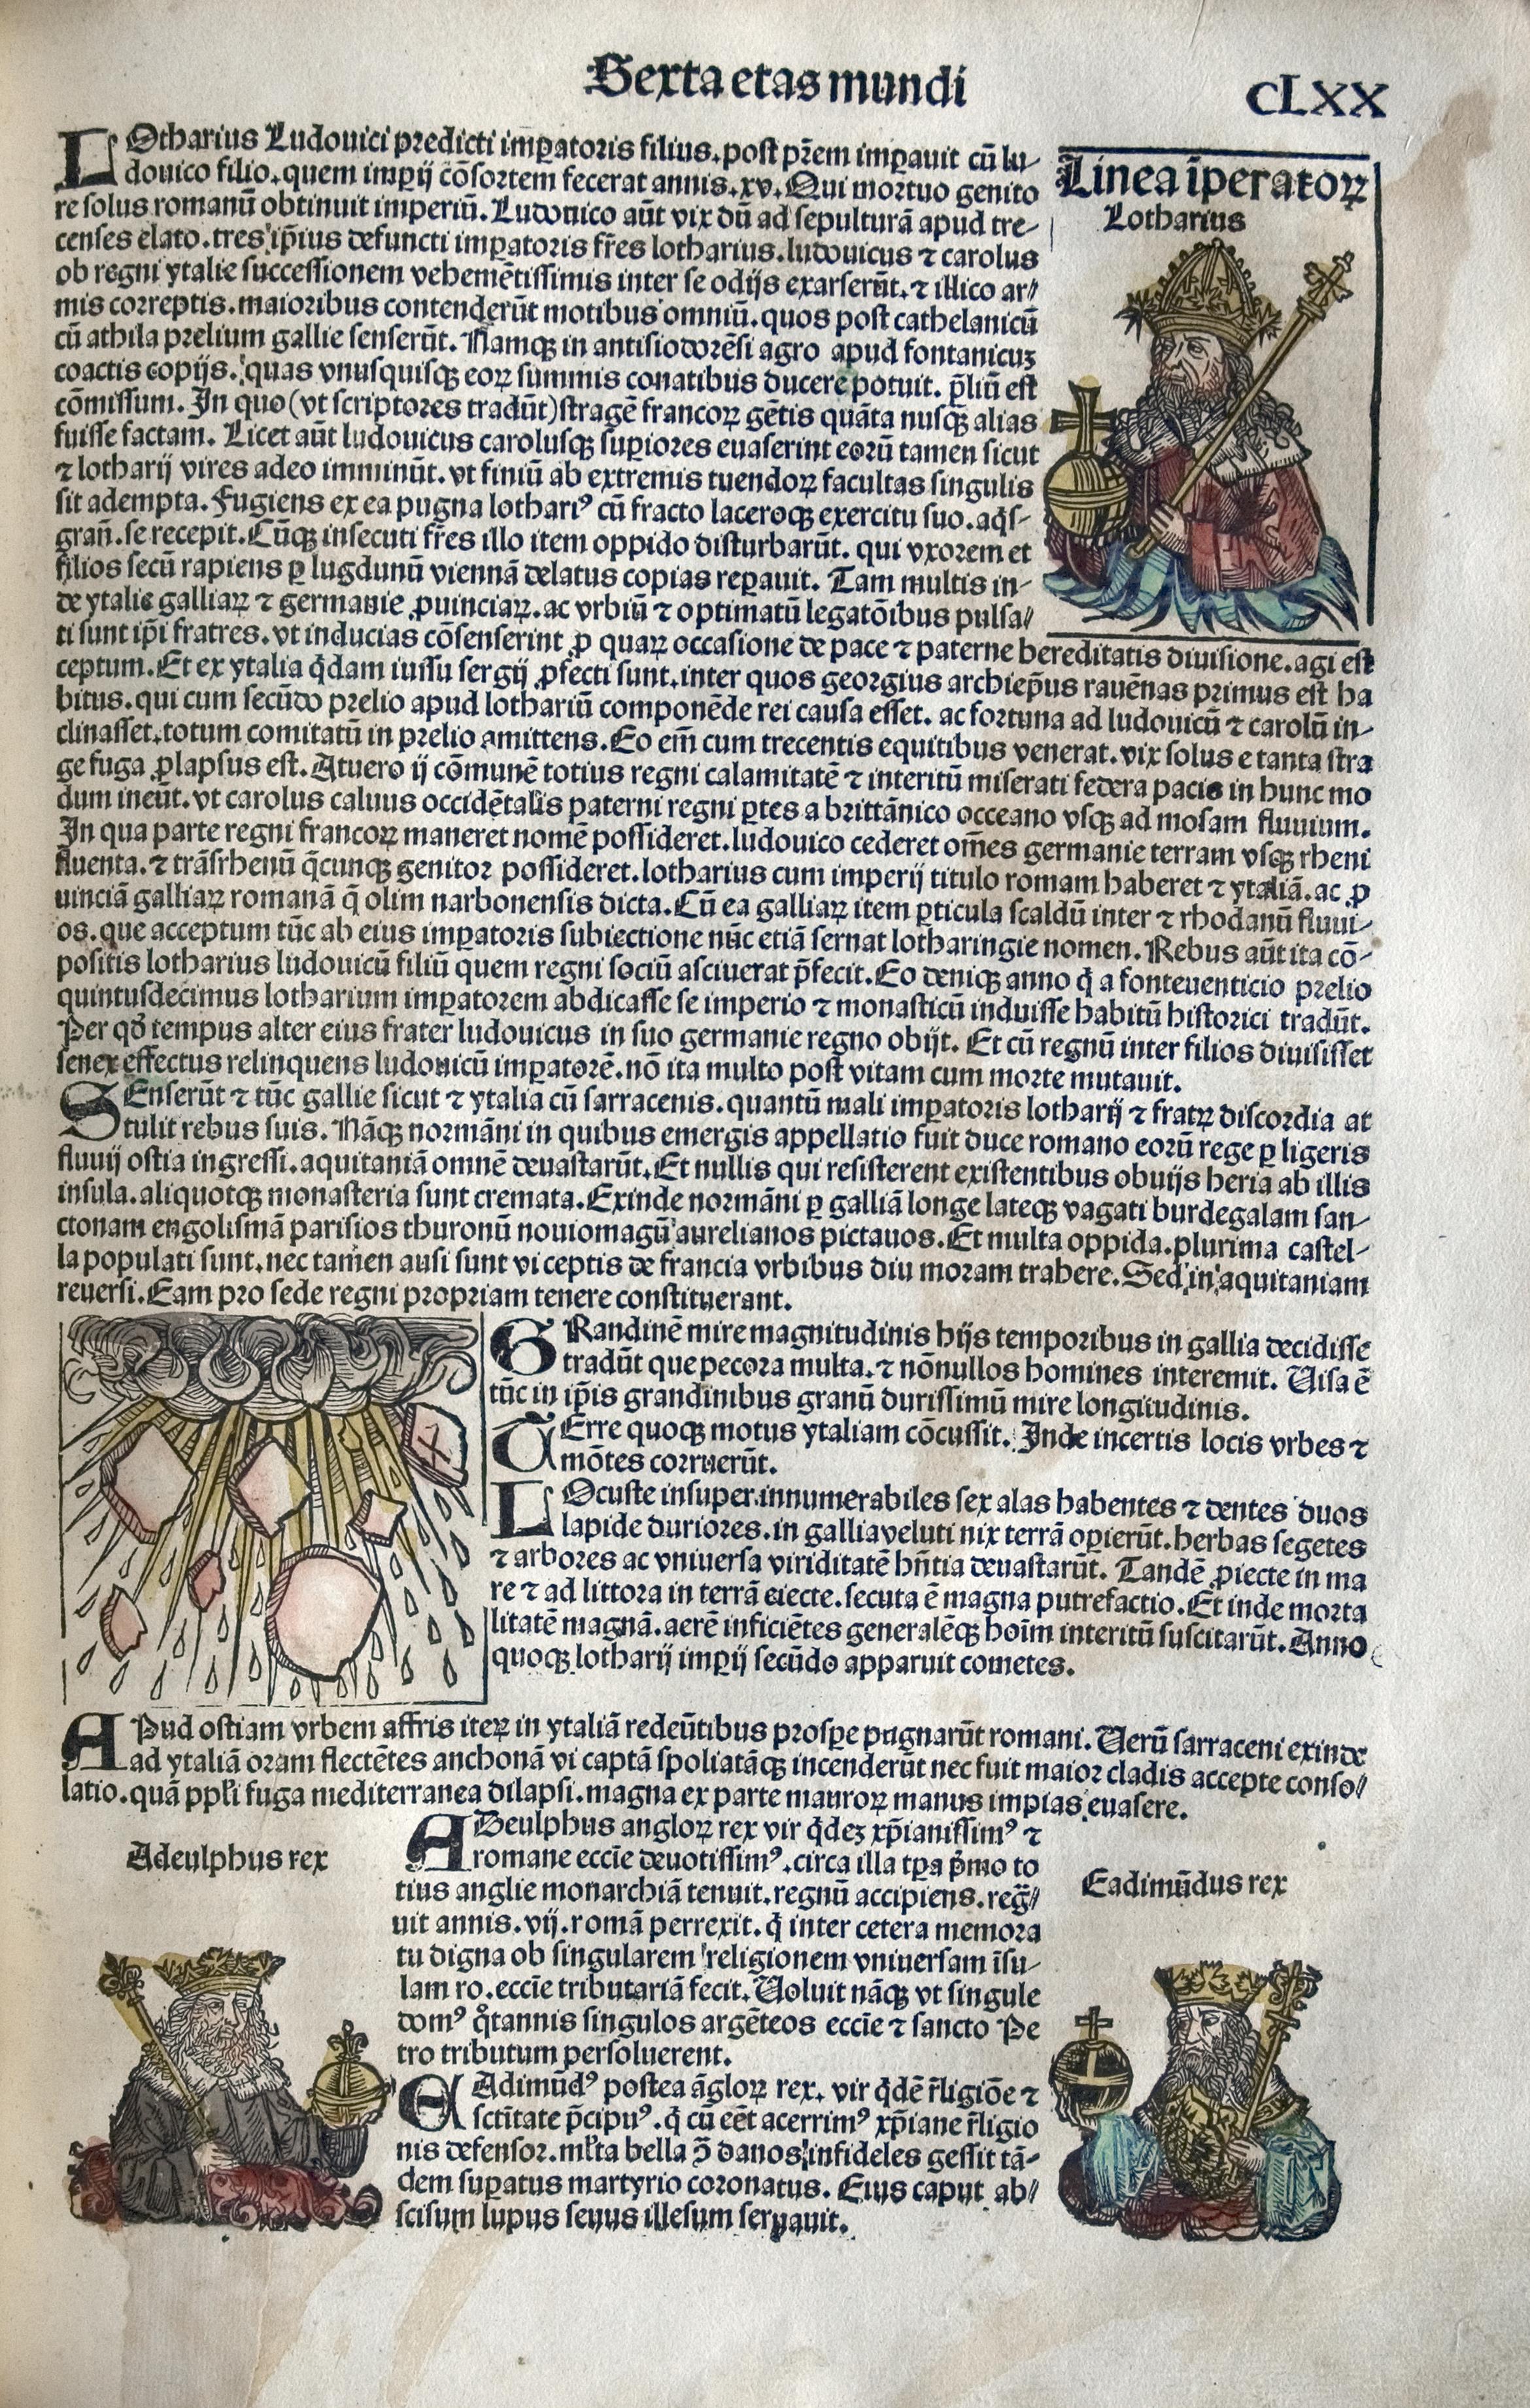 Sexta etas mundi
CLXX
Linea ĩperatoꝝ
Lotharius
LOtharius Ludouici predicti imꝑatoris filius.post pr̃em imꝑauit cũ lu-
douico filio.quem imꝑij cõsortem fecerat annis.xv.Qui mortuo genito
re solus romanũ obtinuit imperiũ.Ludouico aũt vix dũ ad sepulturã apud tre-
censes elato.tres ip̃ius defuncti imꝑatoris fr̃es lotharius.ludouicus ⁊ carolus
ob regni ytalie successionem vehemẽtissimis inter se odijs exarserũt.⁊ illico ar/
mis correptis.maioribus contenderũt motibus omniũ.quos post cathelanicũ
cũ athila prelium gallie senserũt. Namqꝫ in antisiodorẽsi agro apud fontanicuꝫ
coactis copijs.quas vnusquisqꝫ eoꝝ summis conatibus ducere potuit. p̃liũ est
cõmissum. In quo (vt scriptores tradũt) stragẽ francoꝝ gẽtis quãta nusq̃ȝ alias
fuisse factam. Licet aũt ludouicus carolusqꝫ suꝑiores euaserint eorũ tamen sicut
⁊ lotharij vires adeo imminũt.vt finiũ ab extremis tuendoꝝ facultas singulis
sit adempta.Fugiens ex ea pugna lothariꝰ cũ fracto laceroqꝫ exercitu suo.aq̃s-
grañ.se recepit.Cũqꝫ insecuti fr̃es illo item oppido disturbarũt. qui vxorem et
filios secũ rapiens ꝑ lugdunũ viennã delatus copias reꝑauit. Tam multis in-
de ytalie galliaꝝ ⁊ germanie ꝓuinciaꝝ.ac vrbiũ ⁊ optimatũ legatõibus pulsa/
ti sunt ip̃i fratres.vt inducias cõsenserint ꝓ quaꝝ occasione de pace ⁊ paterne hereditatis diuisione.agi est
ceptum.Et ex ytalia q̃dam iussu sergij ꝓfecti sunt.inter quos georgius archiep̃us rauẽnas primus est ha
bitus.qui cum secũdo prelio apud lothariũ componẽde rei causa esset. ac fortuna ad ludouicũ ⁊ carolũ in-
clinasset.totum comitatũ in prelio amittens.Eo em̃ cum trecentis equitibus venerat.vix solus e tanta stra
ge fuga ꝓlapsus est.Atuero ij cõmunẽ totius regni calamitatẽ ⁊ interitũ miserati federa pacis in hunc mo
dum ineũt.vt carolus caluus occidẽtalis paterni regni ꝑtes a brittãnico occeano vsqꝫ ad mosam fluuium.
In qua parte regni francoꝝ maneret nomẽ possideret.ludouico cederet om̃es germanie terram vsqꝫ rheni
fluenta.⁊ trãsrhenũ q̃cunqꝫ genitor possideret.lotharius cum imperij titulo romam haberet ⁊ ytaliã.ac ꝓ
uinciã galliaꝝ romanã q̃ olim narbonensis dicta.Cũ ea galliaꝝ item ꝑticula scaldũ inter ⁊ rhodanũ fluui-
os.que acceptum tũc ab eius imꝑatoris subiectione nũc etiã seruat lotharingie nomen.Rebus aũt ita cõ-
positis lotharius ludouicũ filiũ quem regni sociũ asciuerat p̃fecit.Eo deniqꝫ anno q̃ a fonteuenticio prelio
quintusdecimus lotharium imꝑatorem abdicasse se imperio ⁊ monasticũ induisse habitũ historici tradũt.
Per qđ tempus alter eius frater ludouicus in suo germanie regno obijt. Et cũ regnũ inter filios diuisisset
senex effectus relinquens ludouicũ imꝑatorẽ.nõ ita multo post vitam cum morte mutauit.
SEnserũt ⁊ tũc gallie sicut ⁊ ytalia cũ sarracenis.quantũ mali imꝑatoris lotharij ⁊ fratꝝ discordia at
tulit rebus suis. Nãqꝫ normãni in quibus emergis appellatio fuit duce romano eorũ rege ꝑ ligeris
fluuij ostia ingressi.aquitaniã omnẽ deuastarũt.Et nullis qui resisterent existentibus obuijs heria ab illis
insula.aliquotqꝫ monasteria sunt cremata.Exinde normãni ꝑ galliã longe lateqꝫ vagati burdegalam san-
ctonam engolismã parisios thuronũ nouiomagũ aurelianos pictauos.Et multa oppida.plurima castel-
la populati sunt.nec tamen ausi sunt vi ceptis de francia vrbibus diu moram trahere.Sed in aquitaniam
reuersi.Eam pro sede regni propriam tenere constituerant.
GRandinẽ mire magnitudinis hijs temporibus in gallia decidisse
tradũt que pecora multa.⁊ nõnullos homines interemit. Uisa ẽ
tũc in ip̃is grandinibus granũ durissimũ mire longitudinis.
TErre quoqꝫ motus ytaliam cõcussit. Inde incertis locis vrbes ⁊
mõtes corruerũt.
LOcuste insuper.innumerabiles sex alas habentes ⁊ dentes duos
lapide duriores.in gallia veluti nix terrã oꝑierũt.herbas segetes
⁊ arbores ac vniuersa viriditatẽ hñtia deuastarũt. Tandẽ ꝓiecte in ma
re ⁊ ad littora in terrã eiecte.secuta ẽ magna putrefactio.Et inde morta
litatẽ magnã.aerẽ inficiẽtes generalẽqꝫ hoĩm interitũ suscitarũt.Anno
quoqꝫ lotharij imꝑij secũdo apparuit cometes.
APud ostiam vrbem affris iteꝝ in ytaliã redeũtibus prosꝑe pugnarũt romani. Uerũ sarraceni exinde
ad ytaliã oram flectẽtes anchonã vi captã spoliatãqꝫ incenderũt nec fuit maior cladis accepte conso/
latio.quã ppl̃i fuga mediterranea dilapsi.magna ex parte mauroꝝ manus impias euasere.
Adeulphus rex
ADeulphus angloꝝ rex vir q̃deꝫ xp̃ianissimꝰ ⁊
romane eccl̃ie deuotissimꝰ.circa illa tꝑa p̃mo to
tius anglie monarchiã tenuit.regnũ accipiens.reg̃/
uit annis.vij.romã perrexit.q̃ inter cetera memora
tu digna ob singularem religionem vniuersam ĩsu-
lam ro.eccl̃ie tributariã fecit.Uoluit nãqꝫ vt singule
domꝰ q̃tannis singulos argẽteos eccl̃ie ⁊ sancto Pe
tro tributum persoluerent.
EAdimũdꝰ postea ãgloꝝ rex. vir q̃dẽ r̃ligiõe ⁊
sctĩtate p̃cipuꝰ.q̃ cũ eẽt acerrimꝰ xp̃iane r̃ligio
nis defensor.ml̃ta bella ꝯ̃ danos infideles gessit tã-
dem suꝑatus martyrio coronatus. Eius caput ab/
scisum lupus seuus illesum seruauit.
Eadimũdus rex